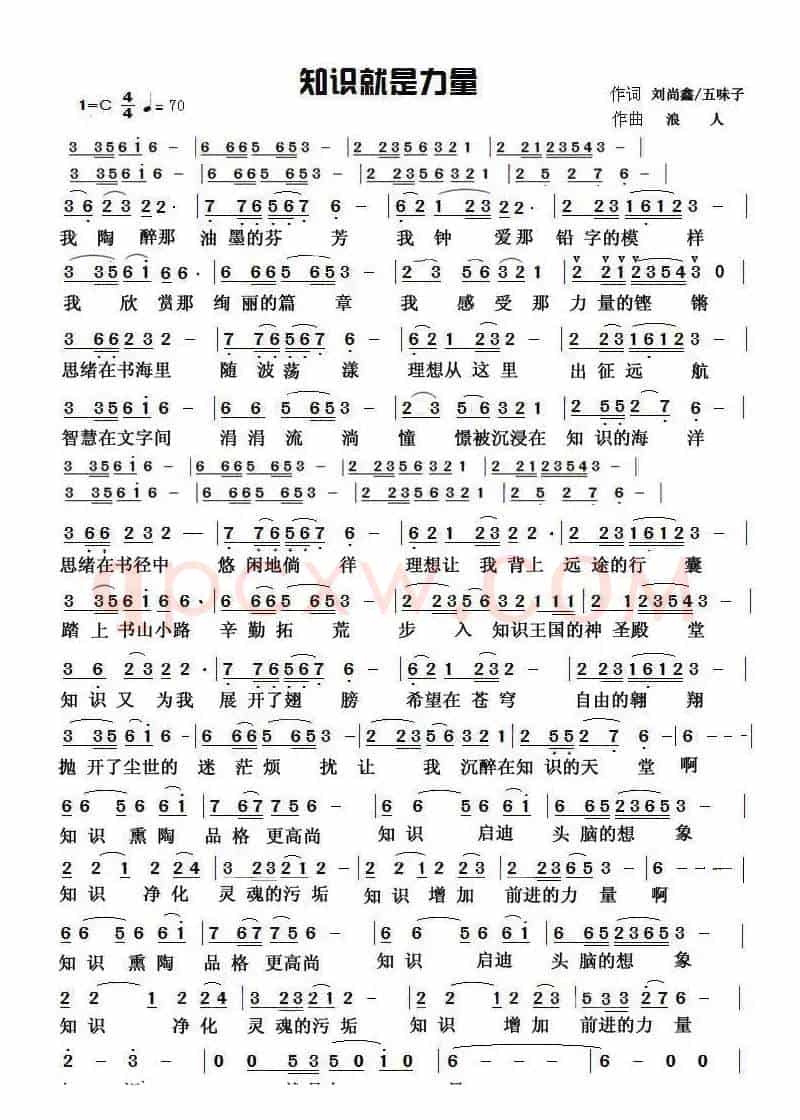 知识就是力量
1=C 4/4 ♩=70 作词 刘尚鑫/五味子
作曲 浪 人
3 3561 6 - | 6 665 653 - | 2 2356321 | 2 2123543 - |
3 3561 6 - | 6 665 653 - | 2 2356321 | 2 5 2 7 6 - |
36 23 22· | 7 76567 6 - | 621 2322· | 2 2316123 - |
我 陶 醉那 油 墨的芬 芳 我 钟 爱那 铅 字的模 样
3 3561 66· | 6 665 653 - | 2 2356321 | 2 2123543 0 |
我 欣 赏那 绚 丽的篇 章 我 感 受 那 力 量的铿 锵
3 66232 - | 7 76567 6 - | 621 232 - | 2 2316123 - |
思绪在书海里 随 波 荡 漾 理想从 这 里 出 征 远 航
3 3561 6 - | 6 665 653 - | 2 3 56321 | 2 55 2 7 6 - |
智慧在文字间 涓 涓 流 淌 憧 憬被沉浸在 知 识的海 洋
3 3561 6 - | 6 665 653 - | 2 2356321 | 2 2123543 - |
3 3561 6 - | 6 665 653 - | 2 2356321 | 2 5 2 7 6 - |
366 232 — | 7 76567 6 - | 621 232 - | 2 2316123 - |
思绪在书径中 悠 闲地倘 徉 理想让 我 背上 远 途的行 囊
3 3561 6 - | 6 665 653 - | 2 2356321 | 2 2123543 - |
踏 上 书山小路 辛 勤 拓 荒 步 入 知识王国的神 圣殿 堂
3 6 232 - | 7 76567 6 - | 621 2322· | 2 2316123 - |
知 识 又 为我 展 开了翅 膀 希望在 苍 穹 自由的翱 翔
3 3561 6 - | 6 665 653 - | 2 2356321 | 2 55 2 7 6 - |
抛 开了尘世的 迷 茫 烦 扰 让 我 沉醉在知 识的天 堂 啊
66 5 661 | 767756 - | 66 5 661 | 6 652365 - |
知 识 熏陶 品 格 更高尚 知 识 启迪 头 脑的想 象
2 2 1 2 24 | 3 23212 - | 22 12123 | 2 23653 - | 6 - - - |
知 识 净化 灵 魂的污 垢 知识 增加 前进的力 量 啊
66 5 661 | 767756 - | 66 5 661 | 6 652365 - |
知 识 熏陶 品 格 更高尚 知 识 启迪 头 脑的想 象
22 1 2 24 | 3 23212 - | 22 1 2123 | 5533 276 - |
知 识 净化 灵 魂的污 垢 知 识 增加 前进的力 量
2 - 3 - | 0 0 535010 | 6 - - - | 6 - - 0 ‖
qpcxw.com